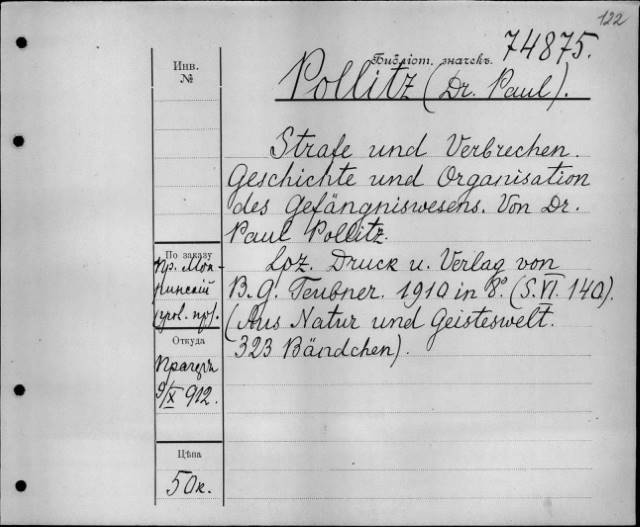 122
74875.
Библіот. значекъ.
Инв.
№
Pollitz (Dr. Paul).
Strafe und Verbrechen.
Geschichte und Organisation
des Gefängniswesens. Von Dr.
Paul Pollitz.
Lpz. Druck u. Verlag von
B. G. Teubner. 1910 in 8º. (S. VI. 140).
(Aus Natur und Geisteswelt.
323 Bändchen).
По заказу
пр. Мок-
ринскій
(угол. пр).
Откуда
9/X 912.
Цѣна
50к.